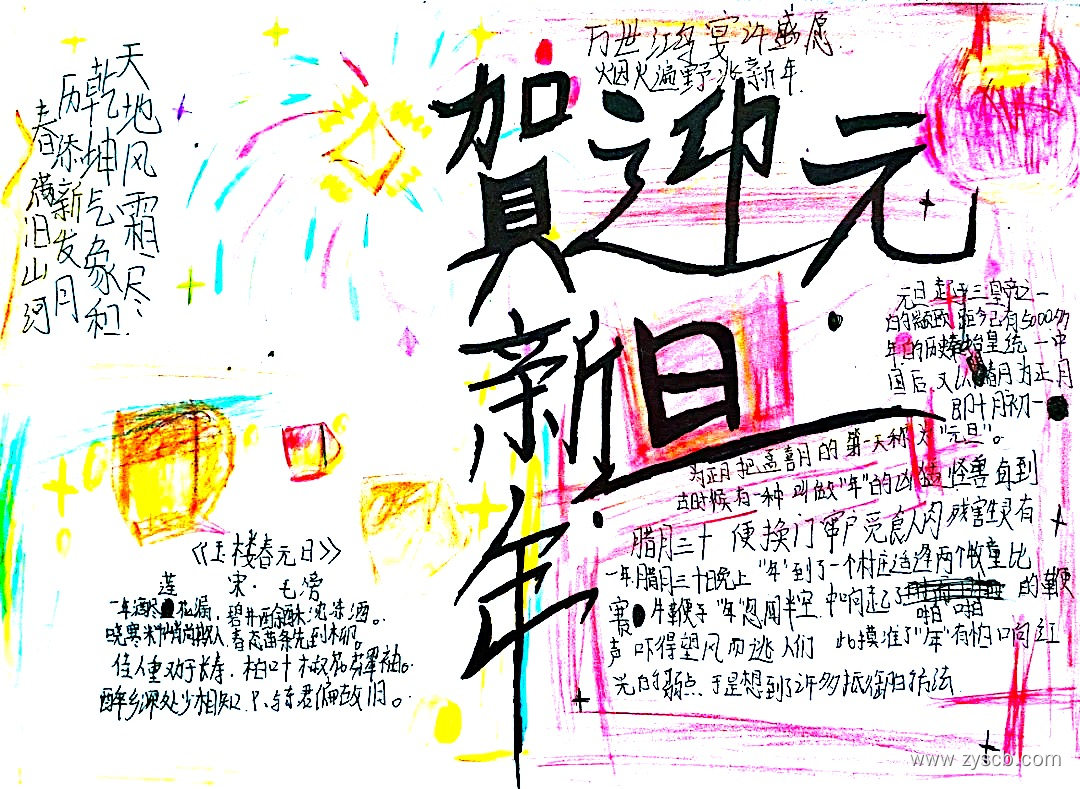 天地风霜尽
乾坤气象和
历添新岁月
春满旧山河
万世江年宴许盛愿
烟火遍野兆新年
賀迎元旦
新年
元旦起于三皇帝之一
距今已有5000多
年的历史秦始皇统一中
国后，又以腊月为正月
即十月初一
为正月把孟喜月的第一天称为"元旦"。
古时候有一种叫做"年"的凶猛怪兽每到
腊月三十便换门
一年腊月三十日晚上"年"到了一个村庄适逢两个牧童比
赛牛鞭子"年"忽闻半空中响起了啪啪的鞭
声吓得望风而逃人们此摸准了"年"有怕响红
光的弱点，于是想到了许多抵御的方法
《玉楼春元日》
宋·毛滂
一年滴尽漏，碧井酴酥沈冻酒。
晓寒料峭尚欺人，春态苗条先到柳。
佳人重劝千长寿，柏叶椒花芬翠袖。
醉乡深处少相知，与东君偏故旧。
www.zyscb.com